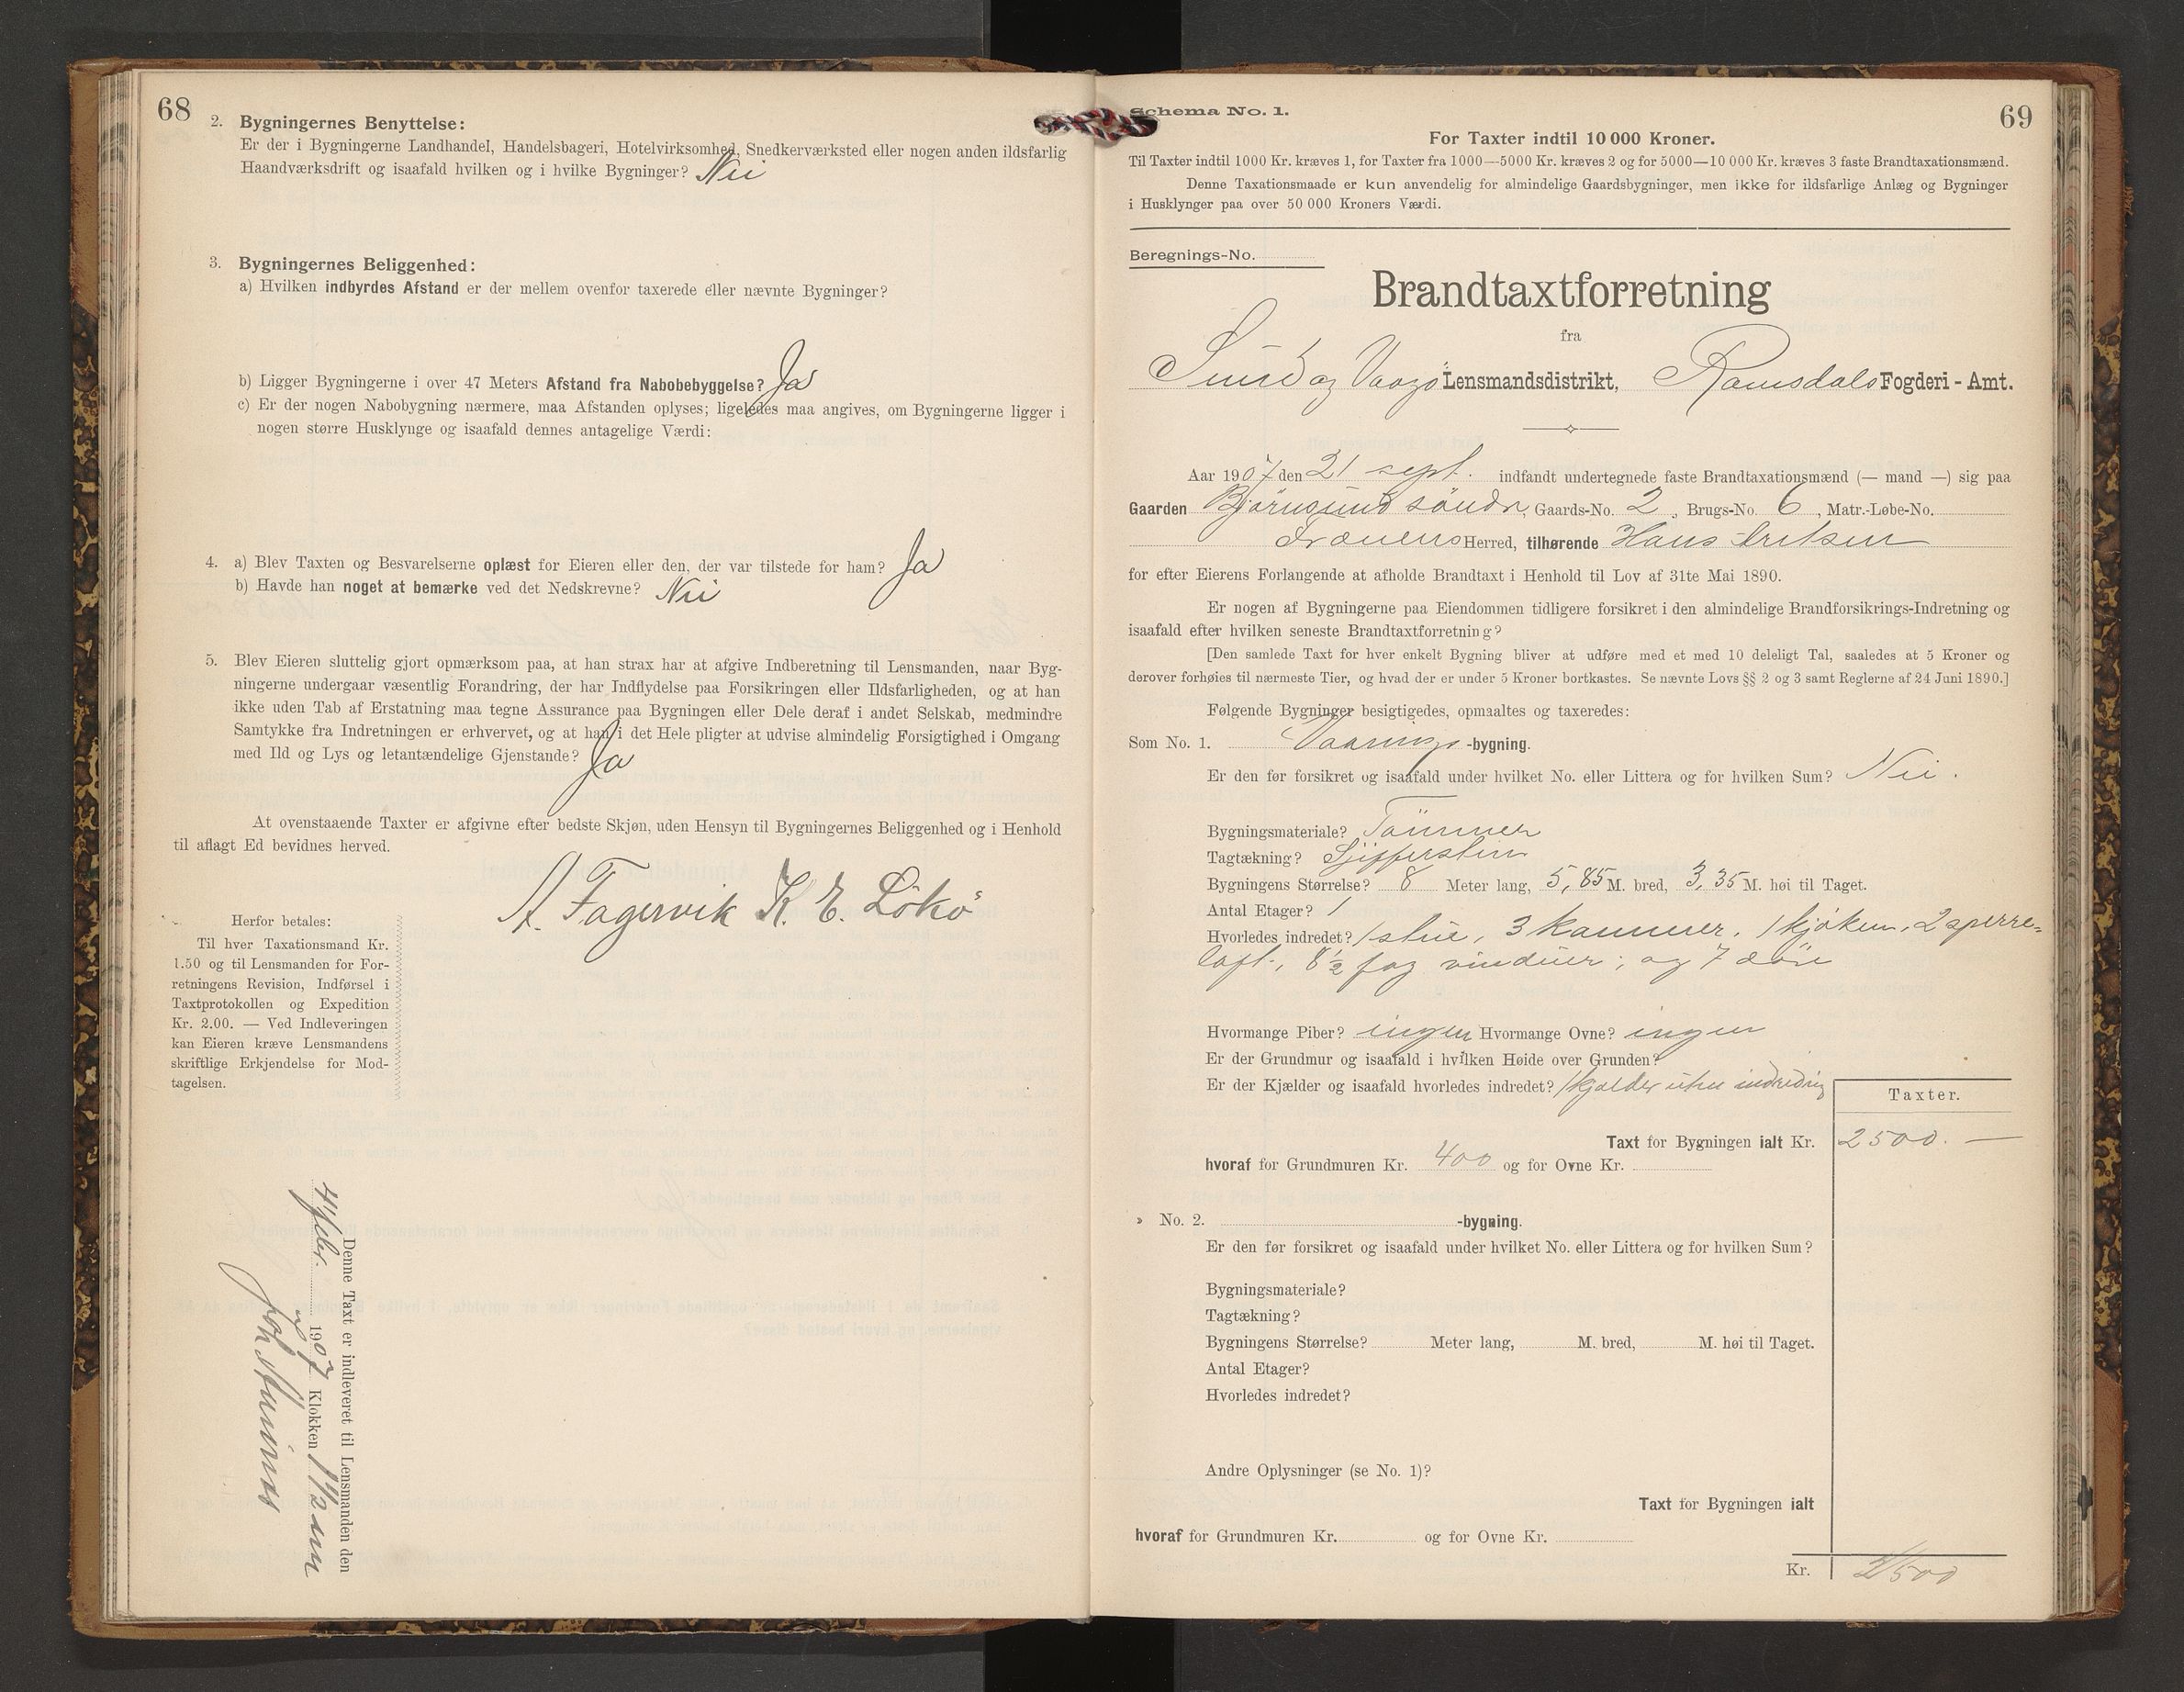 68
2. Bygningernes Benyttelse:
Er der i Bygningerne Landhandel, Handelsbageri, Hotelvirksomhed, Snedkerværksted eller nogen anden ildsfarlig
Haandværksdrift og isaafald hvilken og i hvilke Bygninger? Nei
3. Bygningernes Beliggenhed:
a) Hvilken indbyrdes Afstand er der mellem ovenfor taxerede eller nævnte Bygninger?
b) Ligger Bygningerne i over 47 Meters Afstand fra Nabobebyggelse? Ja
c) Er der nogen Nabobygning nærmere, maa Afstanden oplyses; ligeledes maa angives, om Bygningerne ligger i
nogen større Husklynge og isaafald dennes antagelige Værdi:
4. a) Blev Taxten og Besvarelserne oplæst for Eieren eller den, der var tilstede for ham? Ja
b) Havde han noget at bemærke ved det Nedskrevne? Nei
5. Blev Eieren sluttelig gjort opmærksom paa, at han strax har at afgive Indberetning til Lensmanden, naar Byg-
ningerne undergaar væsentlig Forandring, der har Indflydelse paa Forsikringen eller Ildsfarligheden, og at han
ikke uden Tab af Erstatning maa tegne Assurance paa Bygningen eller Dele deraf i andet Selskab, medmindre
Samtykke fra Indretningen er erhvervet, og at han i det Hele pligter at udvise almindelig Forsigtighed i Omgang
med Ild og Lys og letantændelige Gjenstande? Ja
At ovenstaaende Taxter er afgivne efter bedste Skjøn, uden Hensyn til Bygningernes Beliggenhed og i Henhold
til aflagt Ed bevidnes herved.
A. Fagervik K. E. Løkø
Herfor betales:
Til hver Taxationsmand Kr.
1.50 og til Lensmanden for For-
retningens Revision, Indførsel i
Taxtprotokollen og Expedition
Kr. 2.00. — Ved Indleveringen
kan Eieren kræve Lensmandens
skriftlige Erkjendelse for Mod-
tagelsen.
Denne Taxt er indleveret til Lensmanden den
1907 Klokken 11 1/2 am
69
Schema No. 1.
For Taxter indtil 10 000 Kroner.
Til Taxter indtil 1000 Kr. kræves 1, for Taxter fra 1000—5000 Kr. kræves 2 og for 5000—10 000 Kr. kræves 3 faste Brandtaxationsmænd.
Denne Taxationsmaade er kun anvendelig for almindelige Gaardsbygninger, men ikke for ildsfarlige Anlæg og Bygninger
i Husklynger paa over 50 000 Kroners Værdi.
Beregnings-No.
Brandtaxtforretning
fra
Sund og Vaagø Lensmandsdistrikt, Romsdals Fogderi - Amt.
Aar 1907 den 21 sept. indfandt undertegnede faste Brandtaxationsmænd (— mand —) sig paa
Gaarden Bjørnsund søndre, Gaards-No. 2, Brugs-No. 6, Matr.-Løbe-No.
Frænens Herred, tilhørende Hans
for efter Eierens Forlangende at afholde Brandtaxt i Henhold til Lov af 31te Mai 1890.
Er nogen af Bygningerne paa Eiendommen tidligere forsikret i den almindelige Brandforsikrings-Indretning og
isaafald efter hvilken seneste Brandtaxtforretning?
[Den samlede Taxt for hver enkelt Bygning bliver at udføre med et med 10 deleligt Tal, saaledes at 5 Kroner og
derover forhøies til nærmeste Tier, og hvad der er under 5 Kroner bortkastes. Se nævnte Lovs §§ 2 og 3 samt Reglerne af 24 Juni 1890.]
Følgende Bygninger besigtigedes, opmaaltes og taxeredes:
Som No. 1. Vaanings -bygning.
Er den før forsikret og isaafald under hvilket No. eller Littera og for hvilken Sum? Nei.
Bygningsmateriale? Tømmer
Tagtækning? Sjifferstein
Bygningens Størrelse? 8 Meter lang, 5,85 M. bred, 3,35 M. høi til Taget.
Antal Etager? 1
Hvorledes indredet? 1 stue, 3 kammer, 1 kjøken, 2 sperre-
loft, 8 1/2 fag vinduer, og 7 døre
Hvormange Piber? ingen Hvormange Ovne? ingen
Er der Grundmur og isaafald i hvilken Høide over Grunden?
Er der Kjælder og isaafald hvorledes indredet? 1 kjælder uten indredning
Taxter.
Taxt for Bygningen ialt Kr. 2500. —
hvoraf for Grundmuren Kr. 400 og for Ovne Kr.
» No. 2. -bygning.
Er den før forsikret og isaafald under hvilket No. eller Littera og for hvilken Sum?
Bygningsmateriale?
Tagtækning?
Bygningens Størrelse? Meter lang, M. bred, M. høi til Taget.
Antal Etager?
Hvorledes indredet?
Andre Oplysninger (se No. 1)?
Taxt for Bygningen ialt
hvoraf for Grundmuren Kr. og for Ovne Kr.
Kr. 2500